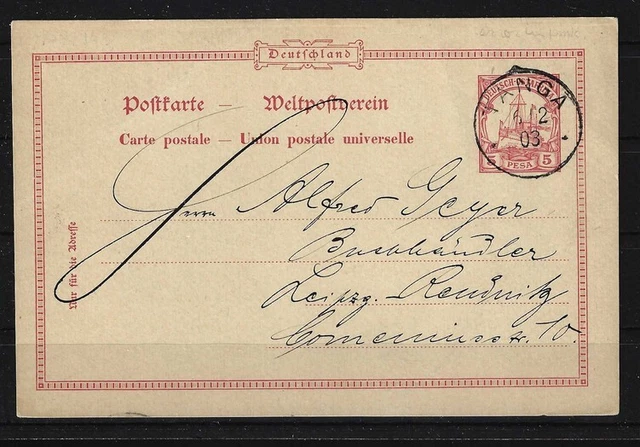 Deutschland
Postkarte — Weltpostverein
Carte postale — Union postale universelle
TANGA
12
03
5 PESA 5
Nur für die Adresse
Herrn Alfred Geyer
Buchhändler
Leipzg. - Reudnitz
Comeniusstr. 10.